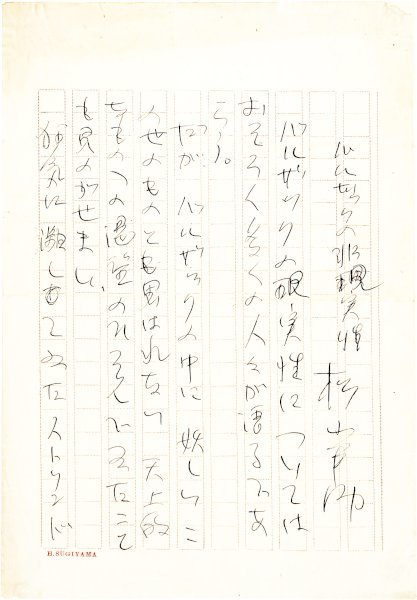 バルザックの非現実性 杉山平助
バルザックの現実性については
おそらく多くの人々が語るであ
らう。
だが バルザックの中に 妖しいこ
の世のものとも思はれない 天上的
なものへの渇望のひそんでゐたこと
も見のがせまい。
狂気に瀕してゐたストリンド
H.SUGIYAMA